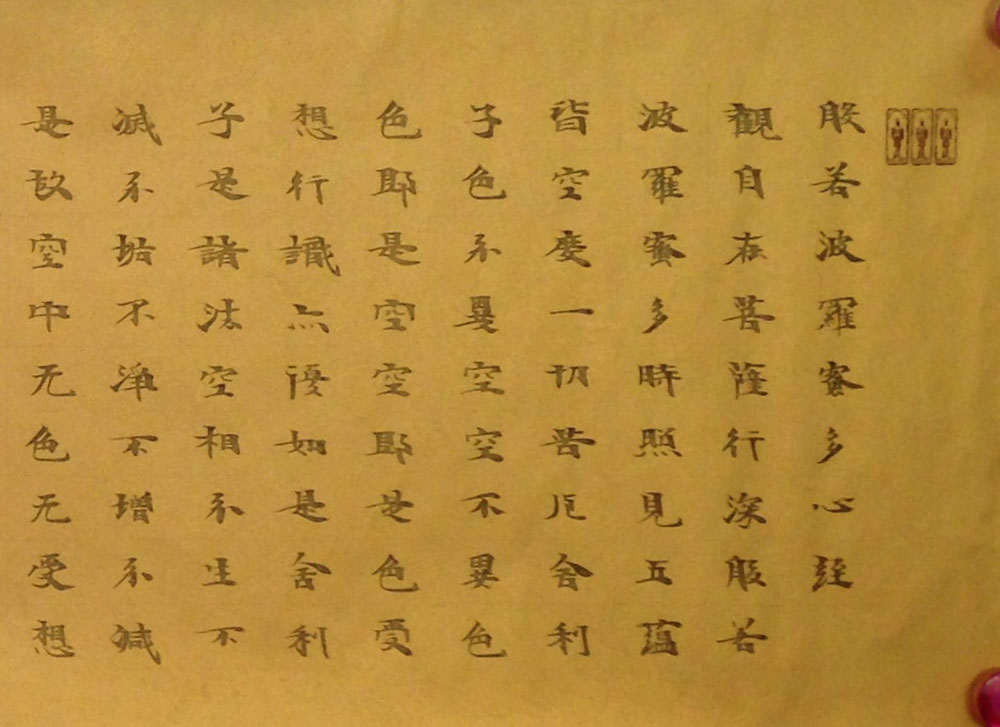 般若波羅蜜多心經
觀自在菩薩行深般若
波羅蜜多時照見五蘊
皆空度一切苦厄舍利
子色不異空空不異色
色耶是空空耶是色受
想行識亦復如是舍利
子是諸法空相不生不
滅不垢不淨不增不減
是故空中无色无受想